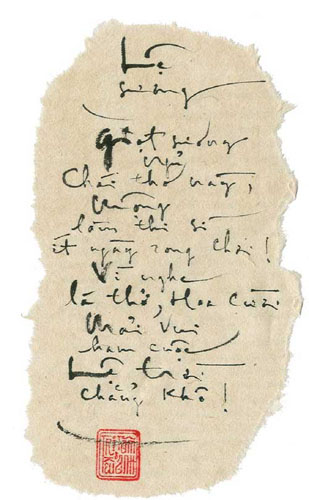 Lệ
sương
Giọt sương
ngủ
Chái thơ này,
làm thi sĩ
ít ngày rong chơi!
Vì nghe
lá thở, Hoa Cười
Mải vui
ham cuộc
Lệ Trời
chẳng khô!